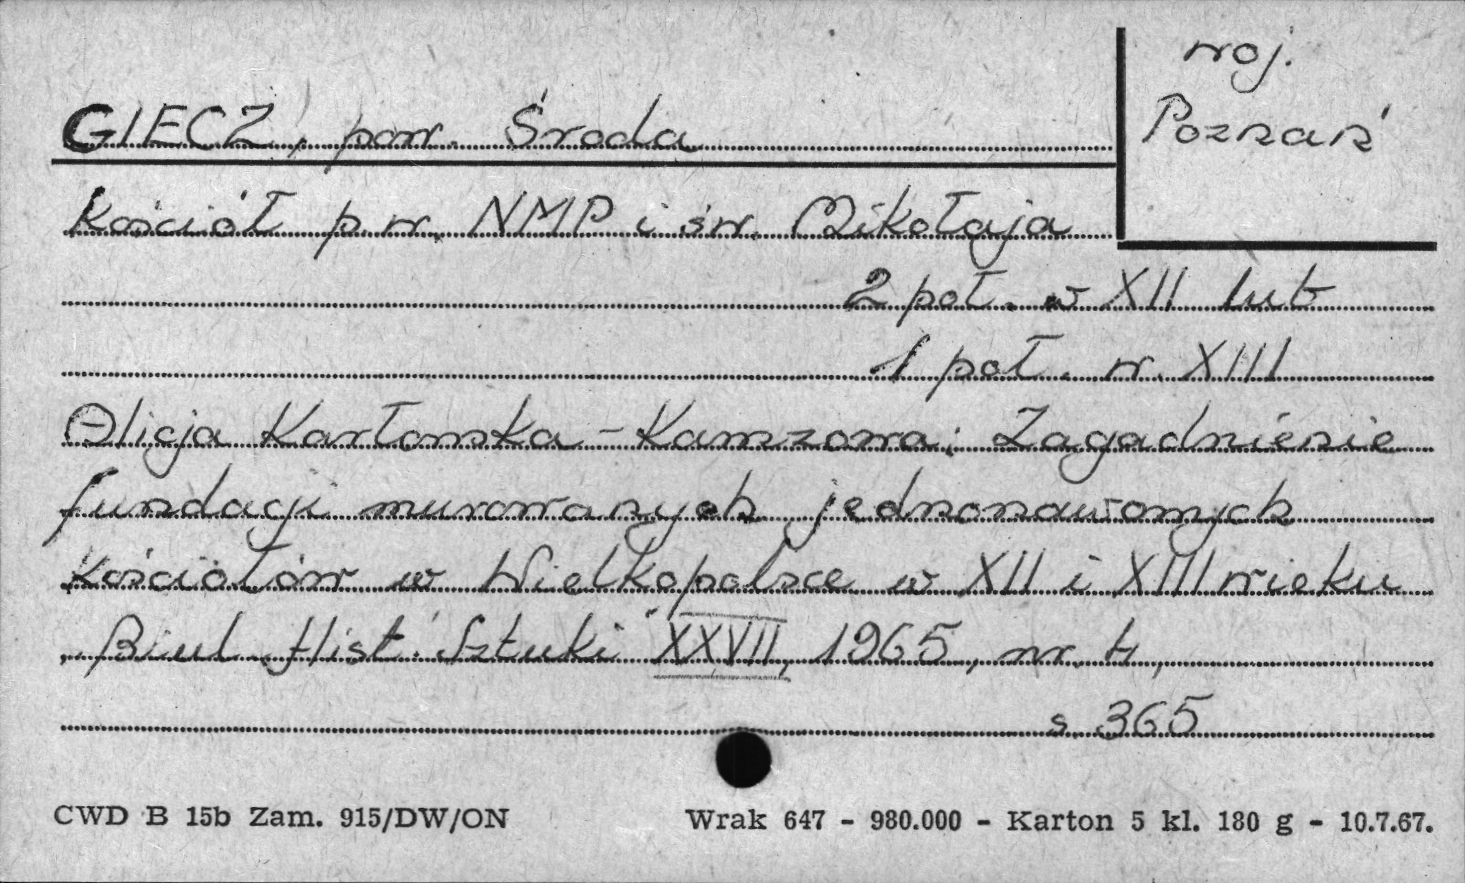 woj.
Poznań
GIECZ, pow. Środa
Kościół p.w. NMP i św. Mikołaja
2 poł. w XII lub
1 poł. w. XIII
Alicja Karłowska-Kamzowa: Zagadnienie
fundacji murowanych jednonawowych
kościołów w Wielkopolsce w XII i XIII wieku
"Biul. Hist. Sztuki" XXVII, 1965, nr. 4,
s. 365
CWD B 15b Zam. 915/DW/ON
Wrak 647 - 980.000 - Karton 5 kl. 180 g - 10.7.67.